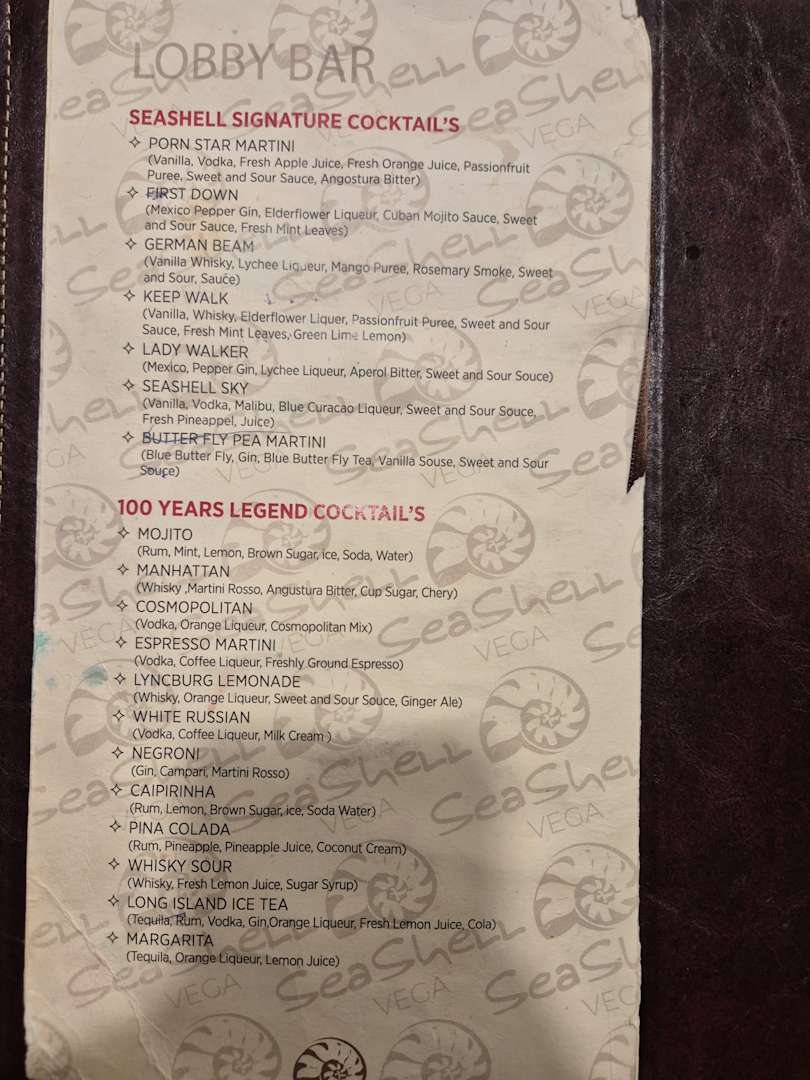 LOBBY BAR
SEASHELL SIGNATURE COCKTAIL'S
PORN STAR MARTINI
(Vanilla, Vodka, Fresh Apple Juice, Fresh Orange Juice, Passionfruit
Puree, Sweet and Sour Sauce, Angostura Bitter)
FIRST DOWN
(Mexico Pepper Gin, Elderflower Liqueur, Cuban Mojito Sauce, Sweet
and Sour Sauce, Fresh Mint Leaves)
GERMAN BEAM
(Vanilla Whisky, Lychee Liqueur, Mango Puree, Rosemary Smoke, Sweet
and Sour, Sauce)
KEEP WALK
(Vanilla, Whisky, Elderflower Liquer, Passionfruit Puree, Sweet and Sour
Sauce, Fresh Mint Leaves, Green Lime Lemon)
LADY WALKER
(Mexico, Pepper Gin, Lychee Liqueur, Aperol Bitter, Sweet and Sour Souce)
SEASHELL SKY
(Vanilla, Vodka, Malibu, Blue Curacao Liqueur, Sweet and Sour Souce,
Fresh Pineappel, Juice)
BUTTER FLY PEA MARTINI
(Blue Butter Fly, Gin, Blue Butter Fly Tea, Vanilla Souse, Sweet and Sour
Souce)
100 YEARS LEGEND COCKTAIL'S
MOJITO
(Rum, Mint, Lemon, Brown Sugar, ice, Soda, Water)
MANHATTAN
(Whisky ,Martini Rosso, Angustura Bitter, Cup Sugar, Chery)
COSMOPOLITAN
(Vodka, Orange Liqueur, Cosmopolitan Mix)
ESPRESSO MARTINI
(Vodka, Coffee Liqueur, Freshly Ground Espresso)
LYNCBURG LEMONADE
(Whisky, Orange Liqueur, Sweet and Sour Souce, Ginger Ale)
WHITE RUSSIAN
(Vodka, Coffee Liqueur, Milk Cream )
NEGRONI
(Gin, Campari, Martini Rosso)
CAIPIRINHA
(Rum, Lemon, Brown Sugar, ice, Soda Water)
PINA COLADA
(Rum, Pineapple, Pineapple Juice, Coconut Cream)
WHISKY SOUR
(Whisky, Fresh Lemon Juice, Sugar Syrup)
LONG ISLAND ICE TEA
(Tequila, Rum, Vodka, Gin,Orange Liqueur, Fresh Lemon Juice, Cola)
MARGARITA
(Tequila, Orange Liqueur, Lemon Juice)